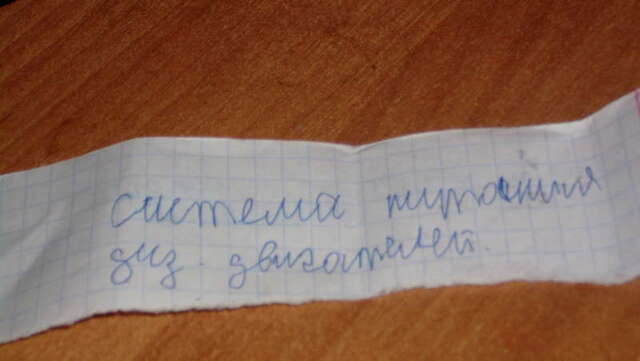 система питания
диз. двигателей.